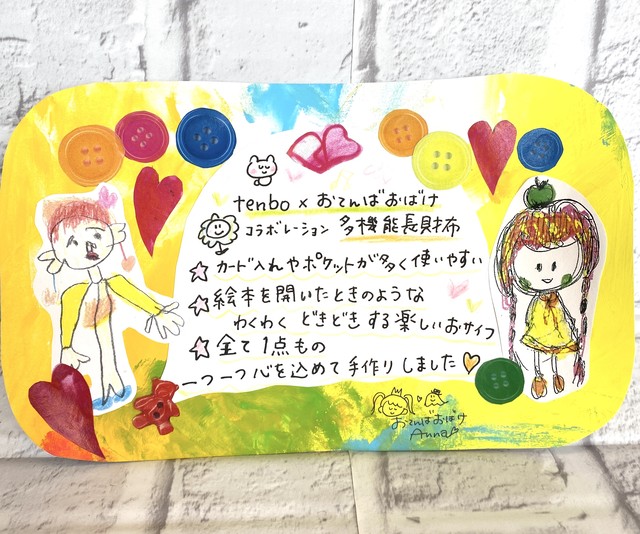 tenbo × おてんばおばけ
コラボレーション 多機能長財布
カード入れやポケットが多く使いやすい
絵本を開いたときのような
わくわく どきどき する楽しいおサイフ
全て1点もの
一つ一つ心を込めて手作りしました
おてんばおばけ
Anna